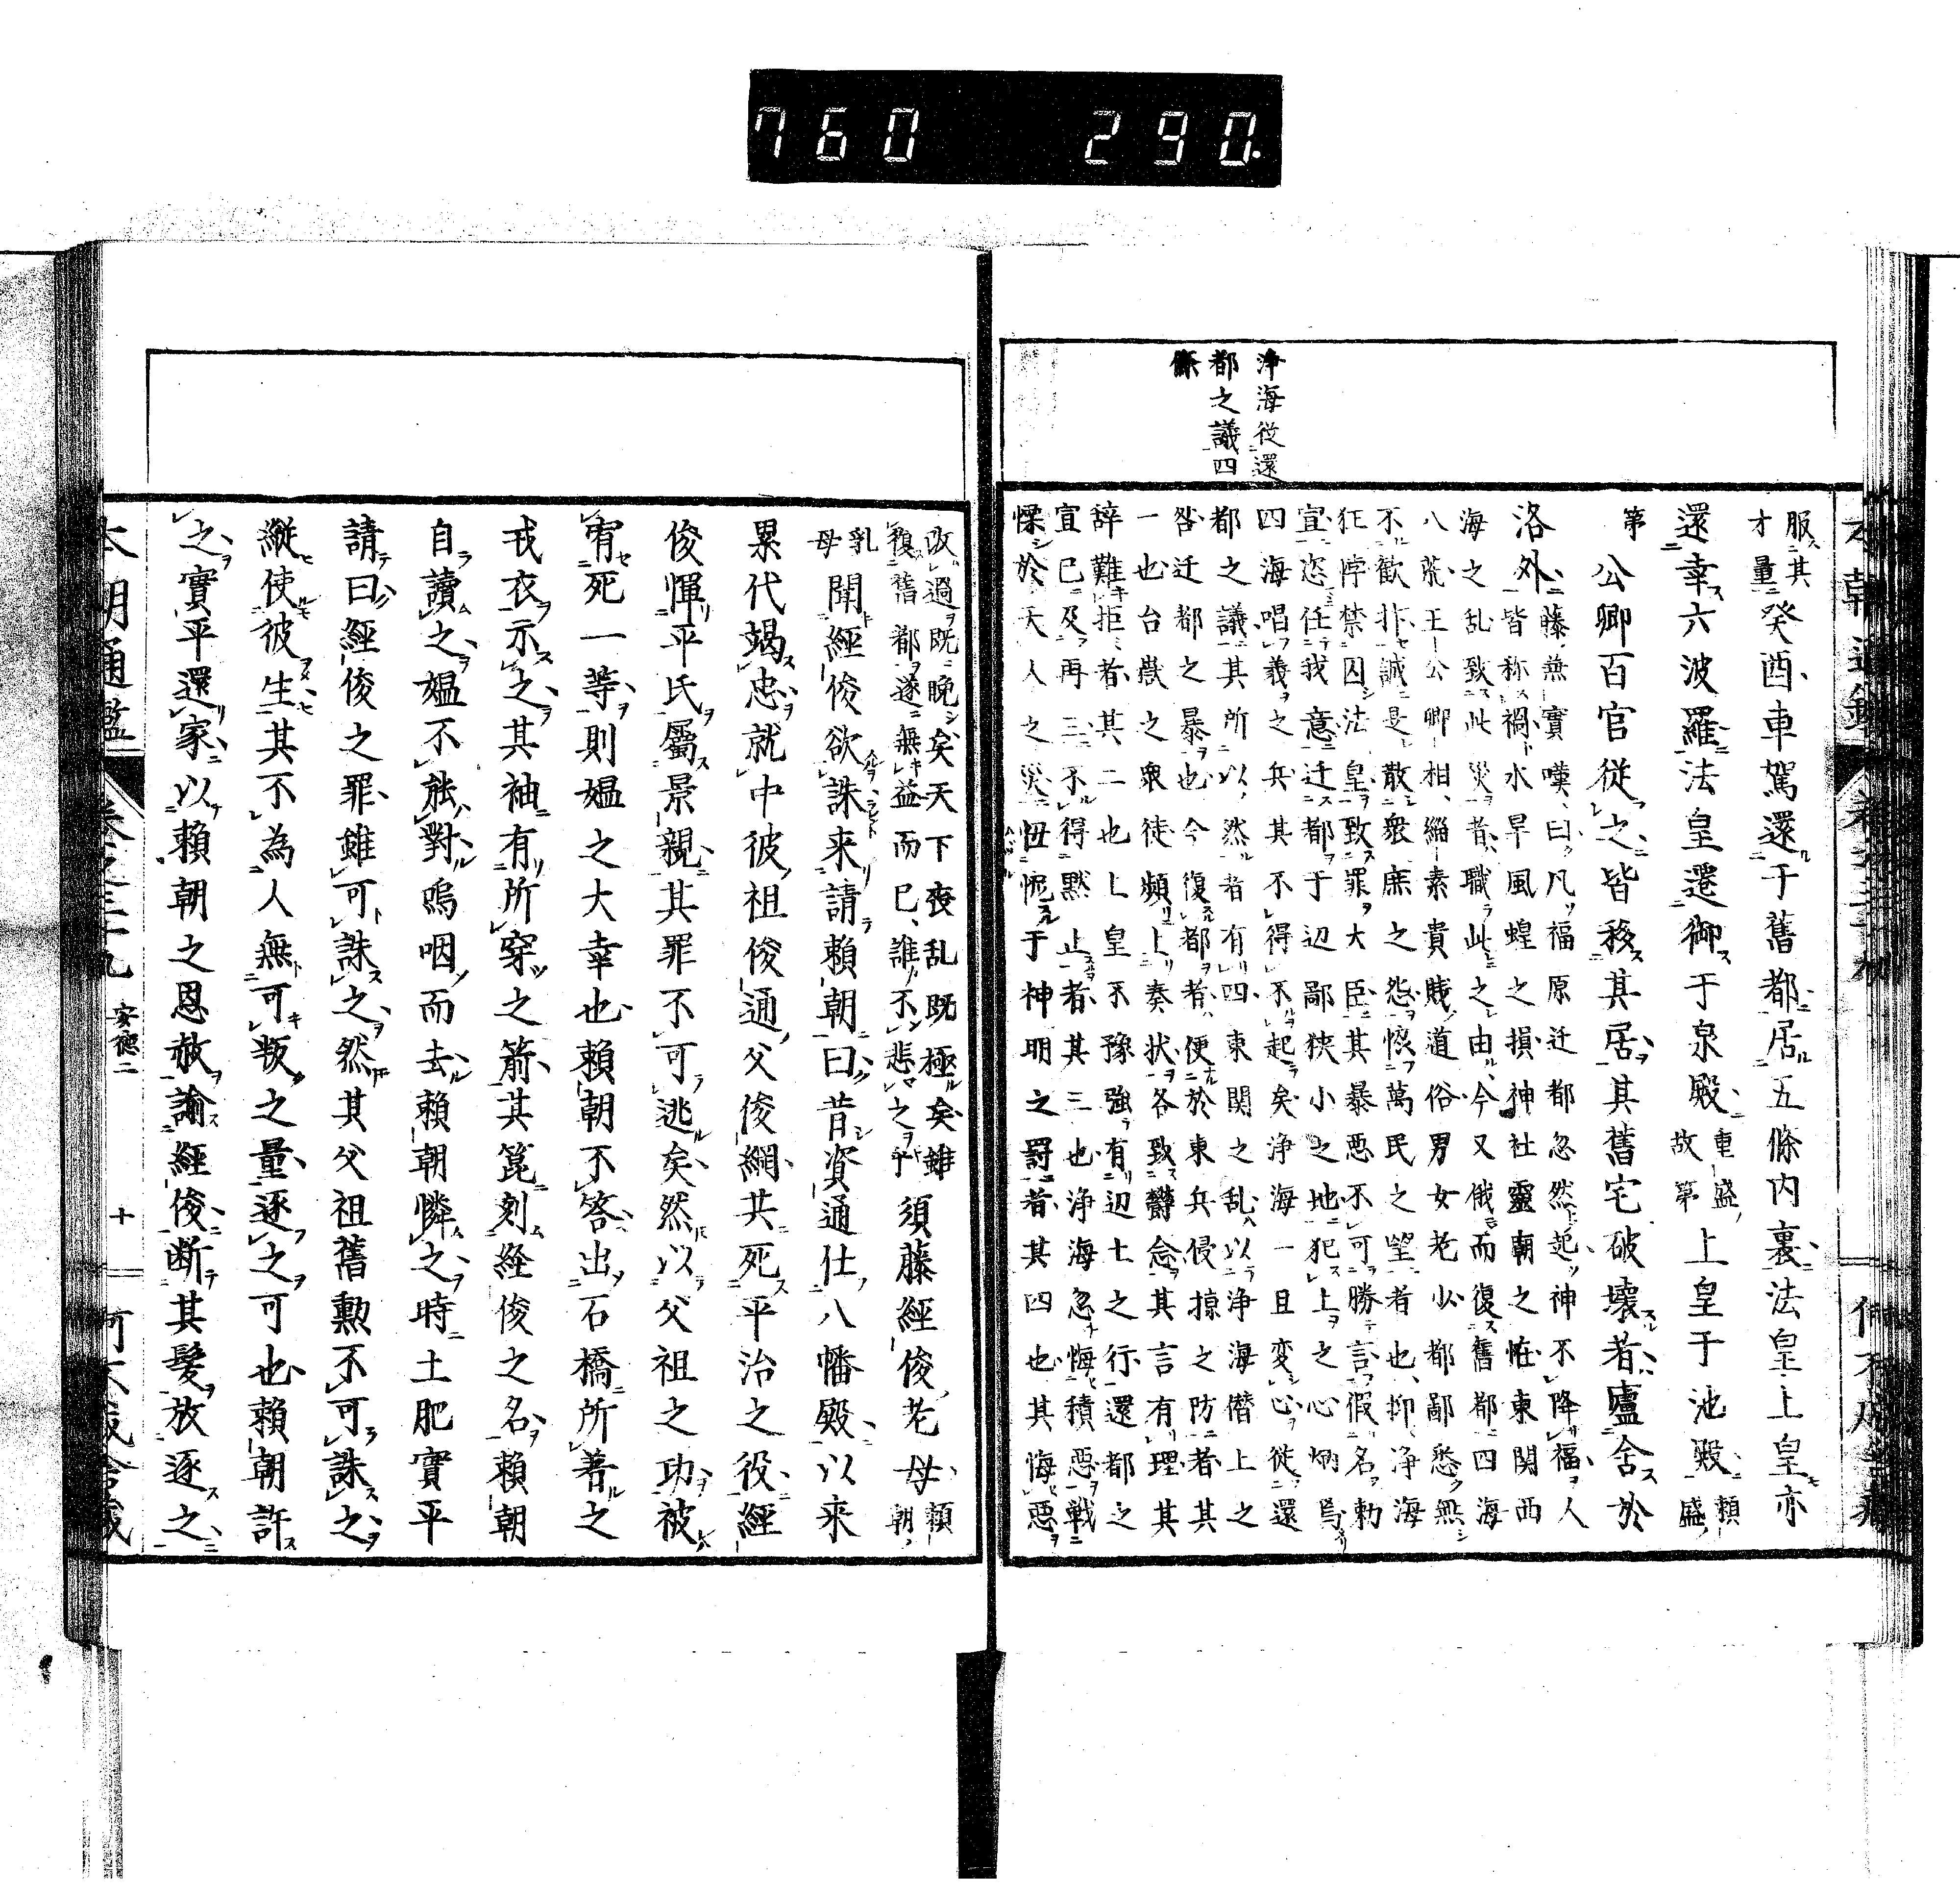 760 290.
浄海從還
都之議四
條
服其
才量癸酉車駕還于舊都居五條内裏法皇上皇亦
還幸六波羅法皇遷御于泉殿重盛
故第上皇于池殿頼盛
第公卿百官從之皆移其居其舊宅破壞者廬舍於
洛外藤無實嘆曰凡福原迁都忽然起神不降福人
皆称禍水旱風蝗之損神社靈朝之恠東関西
海之乱致此災者職此之由今又俄而復舊都四海
八荒王公卿相緇素貴賎道俗男女老少都鄙愁無
不歓抃誠是散衆庶之怨慰萬民之望者也抑浄海
狂悖禁囚法皇致罪大臣其暴悪不可勝言假名勅
宣恣任我意迁都于辺鄙狹小之地犯上之心炳焉
四海唱義之兵其不得不起矣浄海一旦変心従還
都之議其所以然者有四東関之乱以浄海僭上之
咎迁都之暴也今復都者便於東兵侵掠之防者其
一也台嶽之衆徒頻上奏状各致欝念其言有理其
辞難拒者其二也上皇不豫強有辺土之行還都之
宜已及再三不得黙止者其三也浄海忽悔積惡戦
慄於天人之災忸怩于神明之罰者其四也其悔惡
改過既晩矣天下喪乱既極矣雖
復舊都遂無益而已誰不悲之乎須藤經俊老母頼朝
乳
母聞經俊欲誅来請頼朝曰昔資通仕八幡殿以来
累代竭忠就中彼祖俊通父俊綱共死平治之役經
俊惲平氏屬景親其罪不可逃矣然以父祖之功被
宥死一等則媼之大幸也頼朝不答出石橋所著之
戎衣示之其袖有所穿之箭其箆刻経俊之名頼朝
自讀之媼不能對嗚咽而去頼朝憐之時土肥實平
請曰經俊之罪雖可誅之然其父祖舊勲不可誅之
縦使彼生其不為人無可叛之量逐之可也頼朝許
之實平還家以頼朝之恩赦諭經俊断其髪放逐之
本朝通鑑 卷之三十九 安德二 十